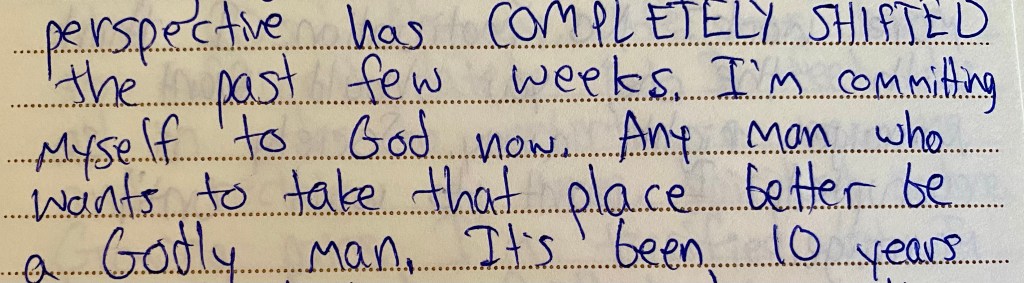 perspective has COMPLETELY SHIFTED
the past few weeks. I'm committing
myself to God now. Any man who
wants to take that place better be
a Godly man. It's been 10 years